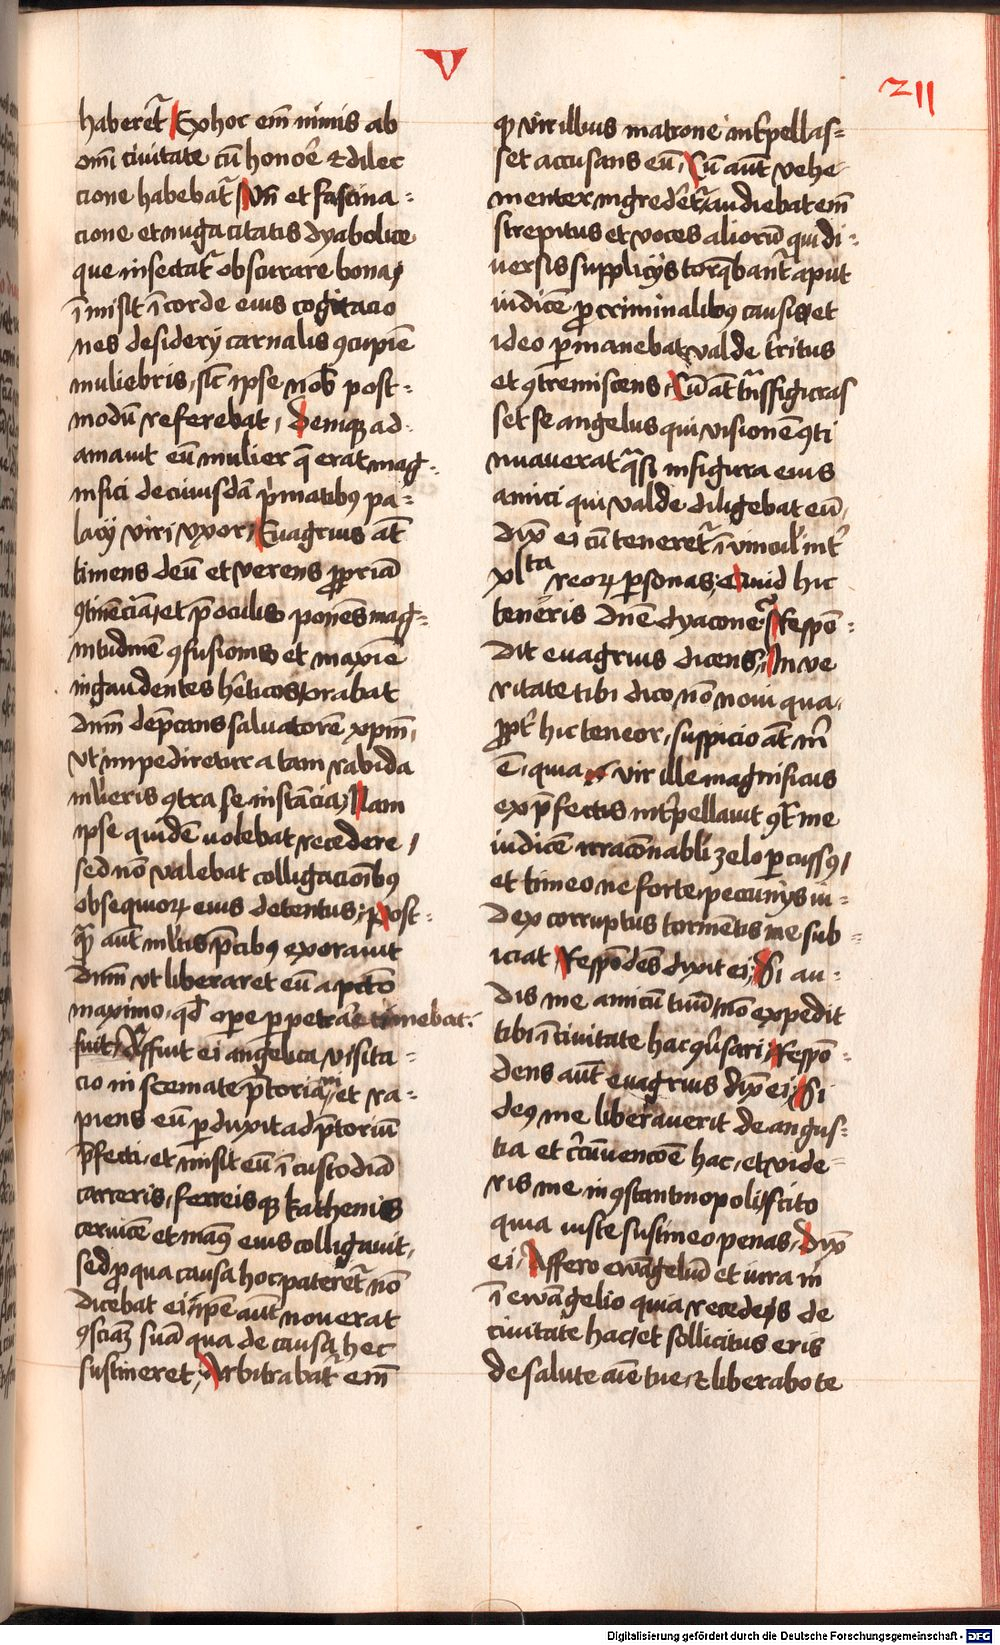 V
211
haberet᷑ Ex hoc em̄ nimis ab
om̄i ciuitate cū honoꝛe ⁊ dilec
cione habebat᷑ Vn̄ et fascina=
cione et nugacitatis dyabolice
que insectat᷑ obscurare bona
īmisit ī corde eius cogitacio
nes desiderij carnalis ꝯcupiē
muliebris, sic̄ ipse nob̄ post=
modū referebat, Deniqꝫ ad
amauit eū mulier q̄ erat mag=
nifici de cuiusdā p̍matibꝰ pa=
lacij viri vxor, Euagrius aūt
timens deū et verens ꝓpriā
ꝯtinēciā, et p̄ oculis ponēs mag=
nitudinē ꝯfusionis et maxīe
ingaudentes hēticos, orabat
dn̄m dep̄cans saluatorē xp̄m,
vt impediretur a tam rabida
ml̄ieris ꝯtra se instācia, Nam
ipse quidē uolebat recedere,
sed nō valebat colligacōibꝰ
obsequioꝝ eius detentus; Post=
q̄ꝫ aūt ml̄tis p̄cibꝰ exorauit
dn̄m vt liberaret eū a pctō
maximo, qd̄ oꝑe ꝑpetrar̄e timebat.
fuit, Affuit ei angelica visita=
cio in scemate p̄toriani, et ra=
piens eū ꝑduxit ad p̄toriū
p̄fecti, et misit eū ī custodiā
carceris, ferreisqꝫ kathenis
ceruicē et manꝰ eius colligauit,
sed ꝓ qua causa hoc pateret᷑ nō
dicebat ei, ip̄e aūt nouerat
ꝯsciaꝫ suā qua de causa hec
sustineret, Arbitrabat᷑ em̄
qꝫ vir illius matrone int̓pellas=
set accusans eū, Cū aūt vehe
menter ingrederet᷑, audiebat em̄
strepitus et voces alioꝛū qui di=
uersis supplicijs torq̄bant᷑ aput
iudicē ꝓ criminalibꝰ causis, et
ideo ꝑmanebat valde t̓ritus
et ꝯtremiscens, Cū aūt t̄nsfiguras
set se angelus qui visionē ꝯti
nuauerat q̄si in figura eius
amici qui valde diligebat eū,
dix̄ ei cū teneret᷑ ī vincul̄ int̓
xlta reoꝝ ꝑsonas, Quid hic
teneris dn̄e dyacone Respō=
dit euagrius dicens, In ve
ritate tibi dico nō noui qua
ꝓpt̓ hic teneor, suspicio aūt m̄
ē, quia vir ille magnificus
ex p̄fectis int̓pellauit ꝯt̄ me
iudicē irracōnabli zelo ꝑcussꝰ,
et timeo ne forte peccunijs iu=
dex corruptus tormētis me sub=
iciat Respōdēs dyxit ei, Si au=
dis me amicū tuū nō expedit
tibi ī ciuitate hac ꝯu̓sari, Respō=
dens aūt euagrius dix̄ ei, Si
deꝰ me liberauerit de angus=
tia et c̄cūuencōe hac, et vide=
ris me in ꝯstantinopoli, scito
quia iuste sustineo penas, Dyx̄
ei, Affero ewāgeliū et iura m̄
ī ewāgelio quia recedens de
ciuitate hac, et sollicitus eris
de salute aīe tue, ⁊ liberabo te
Digitalisierung gefördert durch die Deutsche Forschungsgemeinschaft - DFG